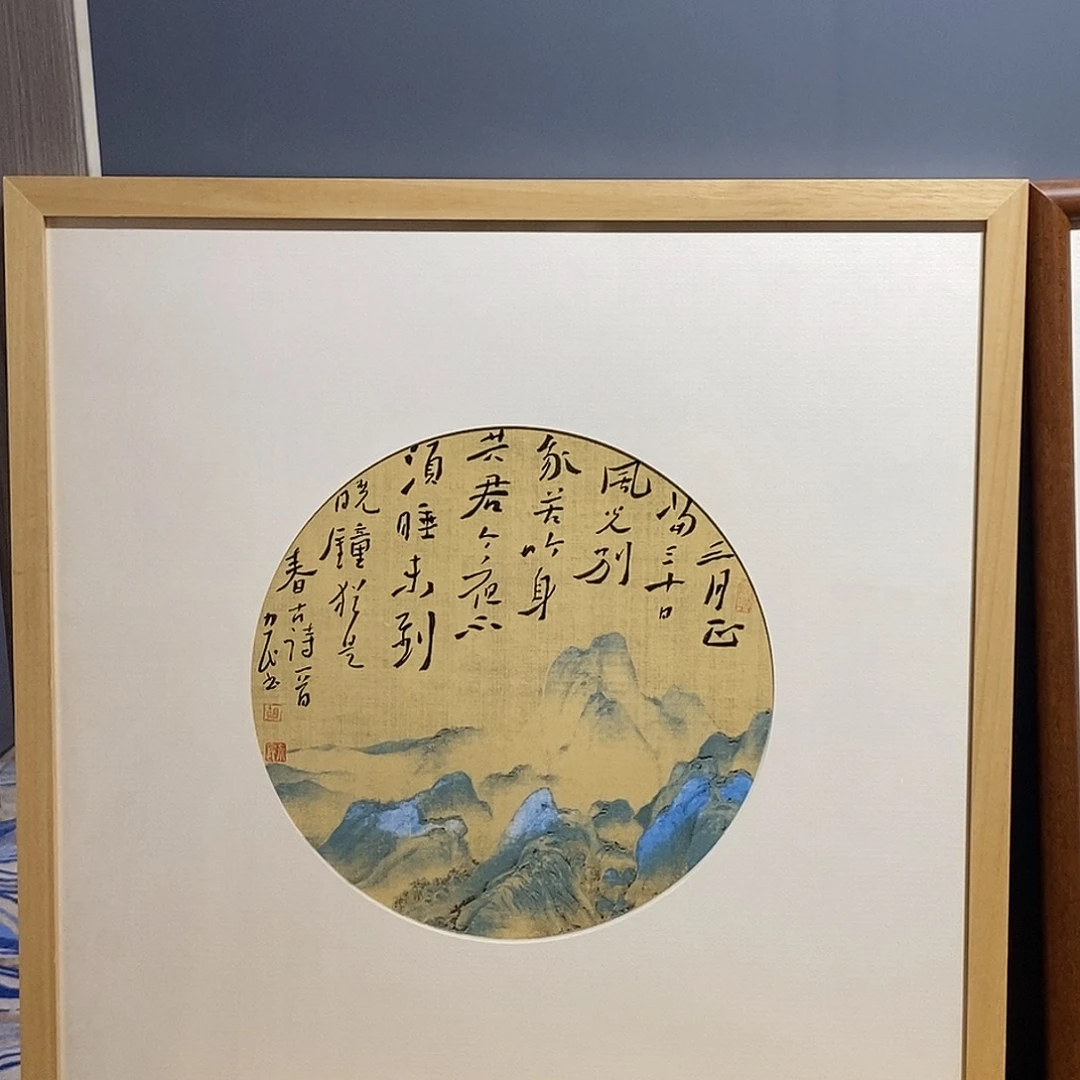 三月正
當三十日
風光别
我苦吟身
共君今夜不
須睡未到
曉鐘犹是
春古詩一首